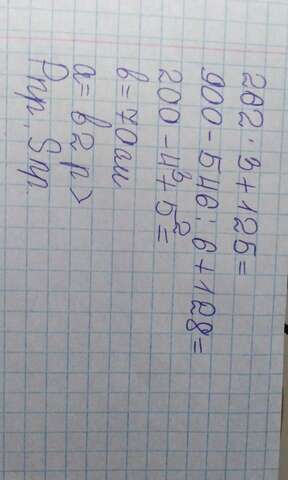 262 · 3 + 125 =
900 - 546 : 6 + 128 =
200 - 4³ + 5² =
в = 70 см
а = в 2 р >
Рпр. Sпр.